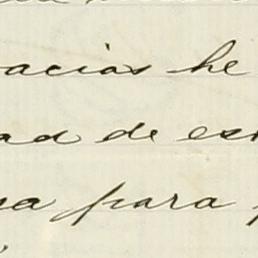 acias he
ad de es
sa para